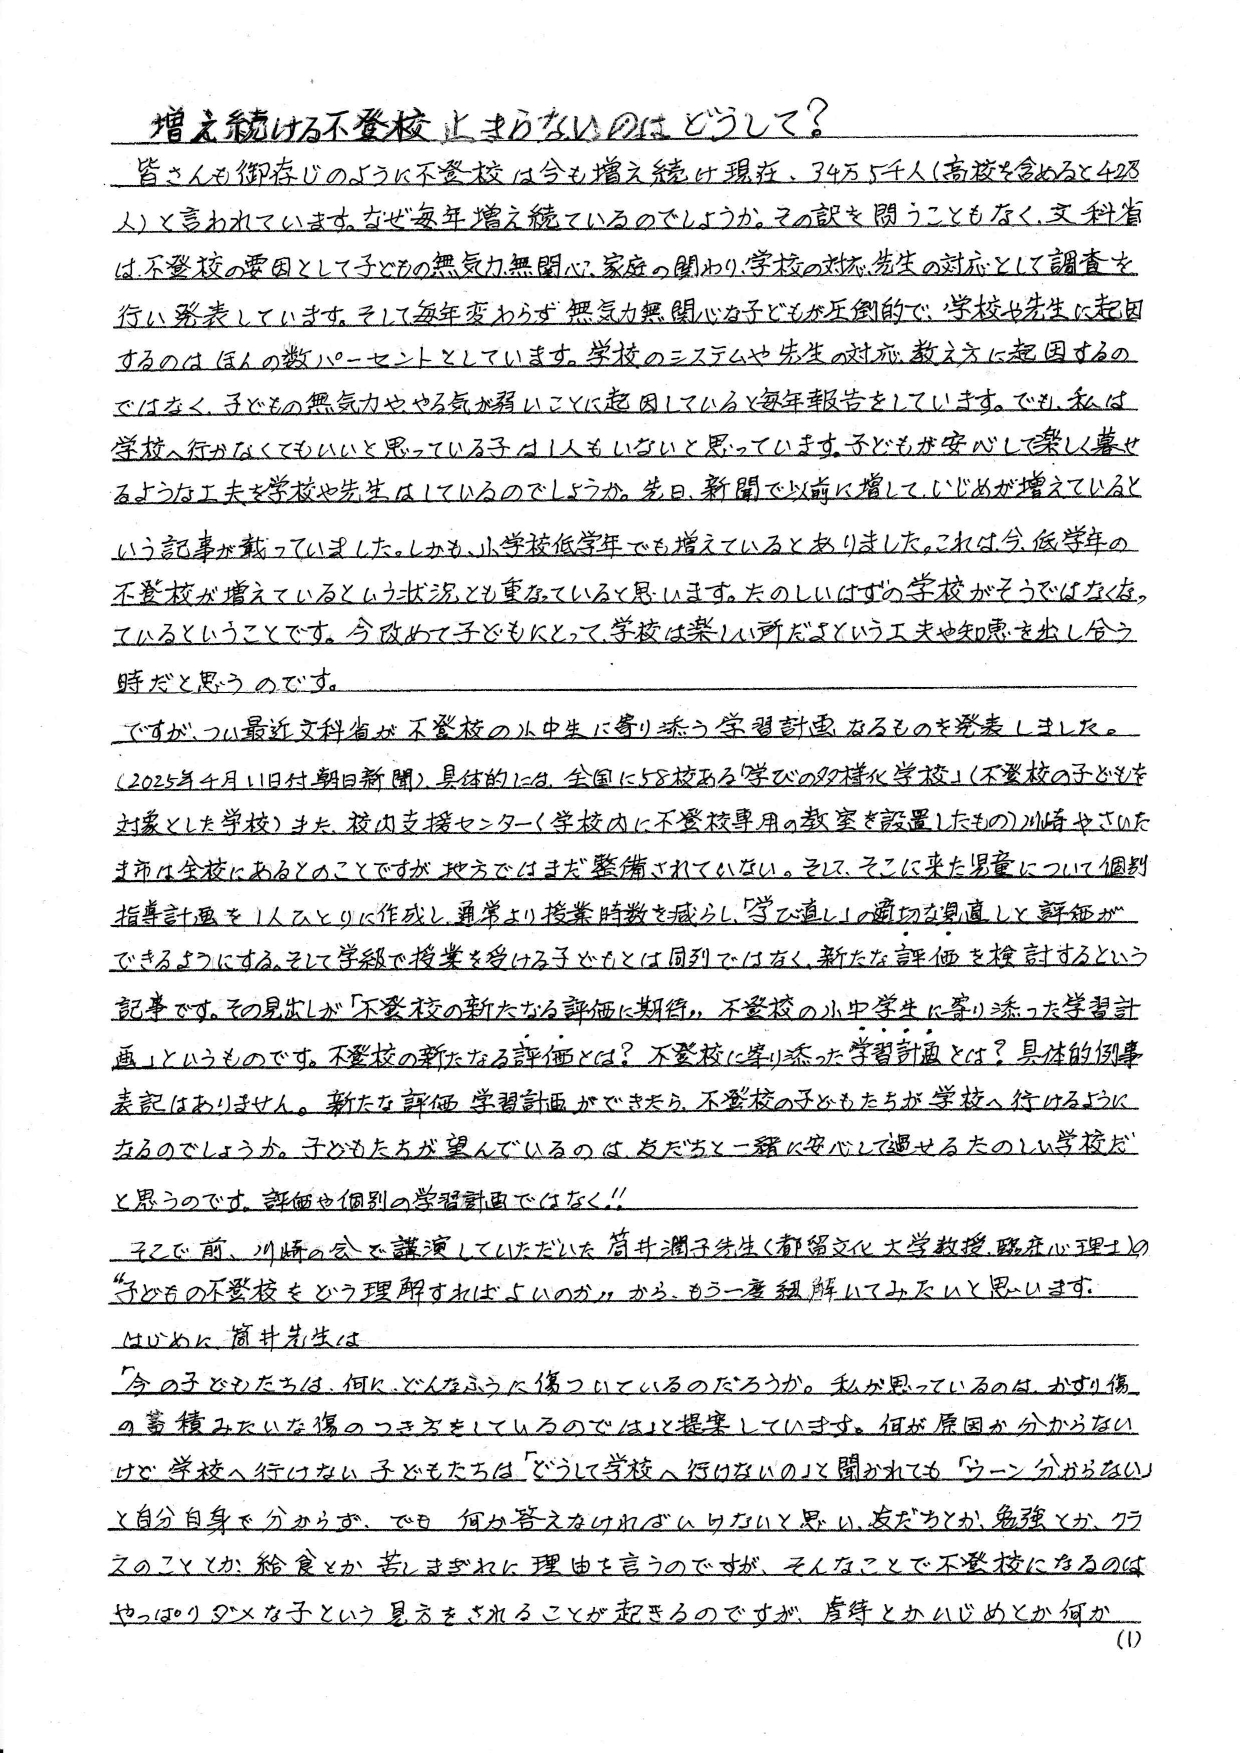 増え続ける不登校 止まらないのはどうして?
皆さんも御存じのように不登校は今も増え続け現在、34万5千人(高校を含めると42万
人)と言われています。なぜ毎年増え続ているのでしょうか。その訳を問うこともなく、文科省
は、不登校の要因として子どもの無気力、無関心、家庭の関わり、学校の対応、先生の対応として調査を
行い発表しています。そして毎年変わらず無気力無関心な子どもが圧倒的で、学校や先生に起因
するのはほんの数パーセントとしています。学校のシステムや先生の対応、教え方に起因するの
ではなく、子どもの無気力ややる気が弱いことに起因していると毎年報告をしています。でも、私は
学校へ行かなくてもいいと思っている子は1人もいないと思っています。子どもが安心して楽しく暮せ
るような工夫を学校や先生はしているのでしょうか。先日、新聞で以前に増して、いじめが増えていると
いう記事が載っていました。しかも、小学校低学年でも増えているとありました。これは今、低学年の
不登校が増えているという状況とも重なっていると思います。たのしいはずの学校がそうではなくなっ
ているということです。今改めて子どもにとって、学校は楽しい所だよという工夫や知恵を出し合う
時だと思うのです。
ですが、つい最近文科省が不登校の小中生に寄り添う学習計画なるものを発表しました。
(2025年4月11日付朝日新聞)、具体的には、全国に58校ある「学びの多様化学校」(不登校の子どもを
対象とした学校)また、校内支援センター(学校内に不登校専用の教室を設置したもの)川崎やさいた
ま市は全校にあるとのことですが地方ではまだ整備されていない。そして、そこに来た児童について個別
指導計画を1人ひとりに作成し、通常より授業時数を減らし、「学び直し」の適切な見直しと評価が
できるようにする。そして学級で授業を受ける子どもとは同列ではなく、新たな評価を検討するという
記事です。その見出しが「不登校の新たなる評価に期待〟不登校の小中学生に寄り添った学習計
画」というものです。不登校の新たなる評価とは? 不登校に寄り添った学習計画とは? 具体的例事
表記はありません。新たな評価 学習計画ができたら、不登校の子どもたちが学校へ行けるように
なるのでしょうか。子どもたちが望んでいるのは、友だちと一緒に安心して過せるたのしい学校だ
と思うのです。評価や個別の学習計画ではなく!!
そこで前、川崎の会で講演していただいた筒井潤子先生(都留文化大学教授、臨床心理士)の
“子どもの不登校をどう理解すればよいのか〟から、もう一度紐解いてみたいと思います。
はじめに、筒井先生は
「今の子どもたちは、何に、どんなふうに傷ついているのだろうか。私が思っているのは、かすり傷
の蓄積みたいな傷のつき方をしているのでは」と提案しています。何が原因か分からない
けど学校へ行けない子どもたちは「どうして学校へ行けないの」と聞かれても「ウーン分からない」
と自分自身で分からず、でも 何か答えなければいけないと思い、友だちとか、勉強とか、クラ
スのこととか、給食とか苦しまぎれに理由を言うのですが、そんなことで不登校になるのは
やっぱりダメな子という見方をされることが起きるのですが、虐待とかいじめとか何か
(1)